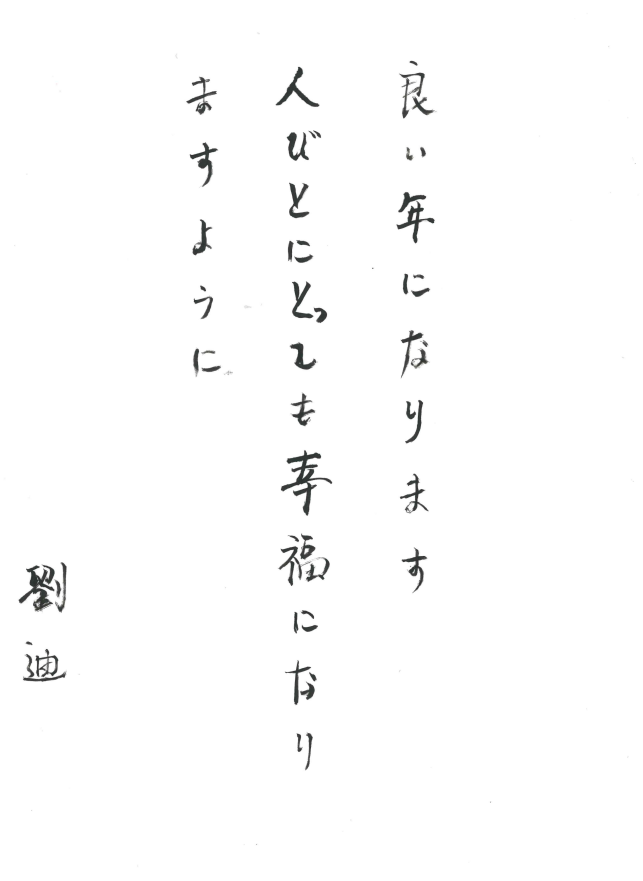 良い年になります
人びとにとっても幸福になり
ますように
劉迪